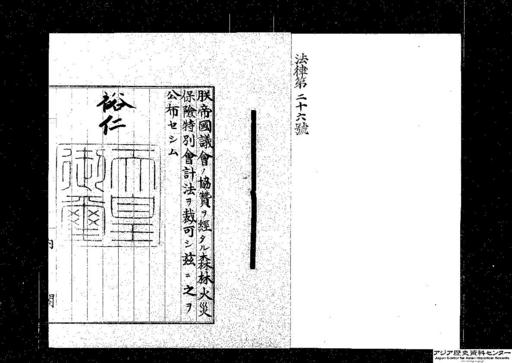 法律第二十六號
朕帝國議會ノ協贊ヲ經タル森林火災
保險特別會計法ヲ裁可シ玆ニ之ヲ
公布セシム
裕仁
天皇
御璽
内閣
アジア歴史資料センター
Japan Center for Asian Historical Records